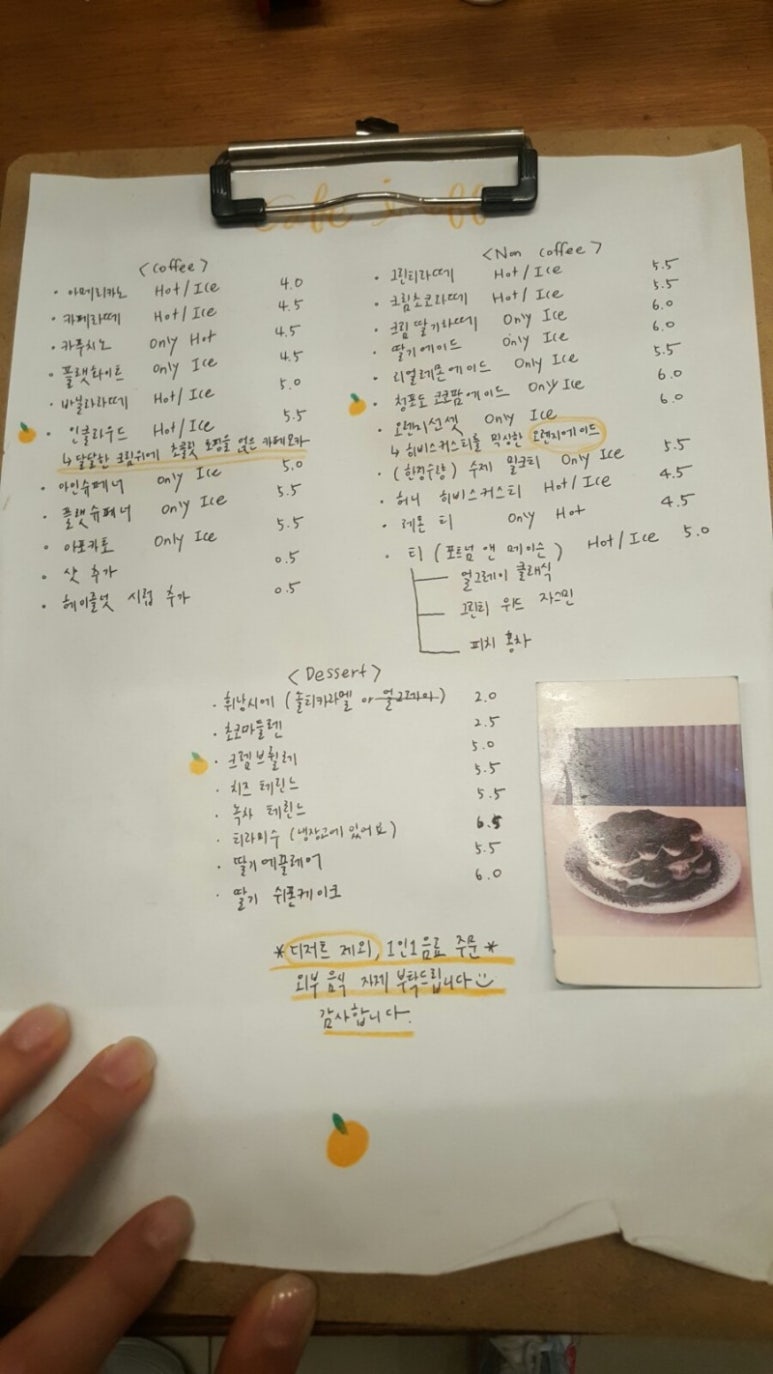 cafe
<Coffee>
· 아메리카노 Hot/Ice 4.0
· 카페라떼 Hot/Ice 4.5
· 카푸치노 Only Hot 4.5
· 플랫화이트 Only Ice 4.5
· 바닐라라떼 Hot/Ice 5.0
· 인클라우드 Hot/Ice 5.5
↳ 달달한 크림위에 초콜릿 토핑을 얹은 카페모카
· 아인슈페너 Only Ice 5.0
· 플랫슈페너 Only Ice 5.5
· 아포카토 Only Ice 5.5
· 샷 추가 0.5
· 헤이즐넛 시럽 추가 0.5
<Non coffee>
· 그린티라떼 Hot/Ice 5.5
· 크림초코라떼 Hot/Ice 5.5
· 크림딸기라떼 Only Ice 6.0
· 딸기에이드 Only Ice 6.0
· 리얼레몬에이드 Only Ice 5.5
· 청포도 코코팜에이드 Only Ice 6.0
· 오렌지선셋 Only Ice 6.0
↳ 히비스커스티를 믹싱한 오렌지에이드
· (한정수량) 수제 밀크티 Only Ice 5.5
· 허니 히비스커스티 Hot/Ice 4.5
· 레몬 티 Only Hot 4.5
· 티 (포트넘 앤 메이슨) Hot/Ice 5.0
얼그레이 클래식
그린티 위드 자스민
피치 홍차
<Dessert>
· 휘낭시에 (솔티카라멜 or 얼그레이) 2.0
· 초코마들렌 2.5
· 크렘브륄레 5.0
· 치즈 테린느 5.5
· 녹차 테린느 5.5
· 티라미수 (냉장고에 있어요) 6.5
· 딸기에끌레어 5.5
· 딸기 쉬폰케이크 6.0
*디저트 제외, 1인1음료 주문*
외부 음식 자제 부탁드립니다
감사합니다.